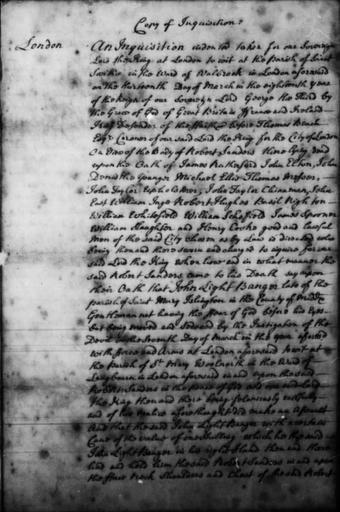 Copy of Inquisition
London An Inquisition indented taken for our Sovereign
Lord the King at London to wit at the Parish of Saint
in the Ward of Walbrook in London aforesaid
on the thirteenth Day of March in the eighteenth year
of the reign of our Sovereign Lord George the Third by
the Grace of God of Great Britain France and Ireland
King Defender of the Faith before Thomas Beach
Coroner of our said Lord the King for the City of London
On View of the Body of Robert Sanders there lying dead
upon the Oath of James Rutherford John Elton, John
the Younger Michael Ellis Thomas
John Taylor John Taylor Chinaman, John
East William Inge Robert Hughes Basil
William Whitefield William James
William Slaughter and Henry Cooke good and lawful
Men of the said City chosen as by Law is directed who
being then and there sworn and charged to inquire for our
said Lord the King when how and in what manner the
said Robert Sanders came to his Death say upon
their Oath that John Light Banger late of the
parish of Saint Mary Islington in the County of Middx
Gentleman not having the fear of God before his Eyes
but being moved and seduced by the Instigation of the
Devil on the seventh Day of March in the year aforesaid
with force and Arms at London aforesaid to wit at
the Parish of St. Mary Woolnoth in the Ward of
Langbourn in London aforesaid in and upon the said
Robert Sanders in the peace of God and our said Lord
the King then and there being feloniously wilfully
and of his malice aforethought did make an Assault
And that the said John Light Banger with a certain
Cane of the value of one Shilling which he the said
John Light Banger in his right Hand then and there
had and held him the said Robert Sanders in and upon
the Shoulders and Chest of the said Robert